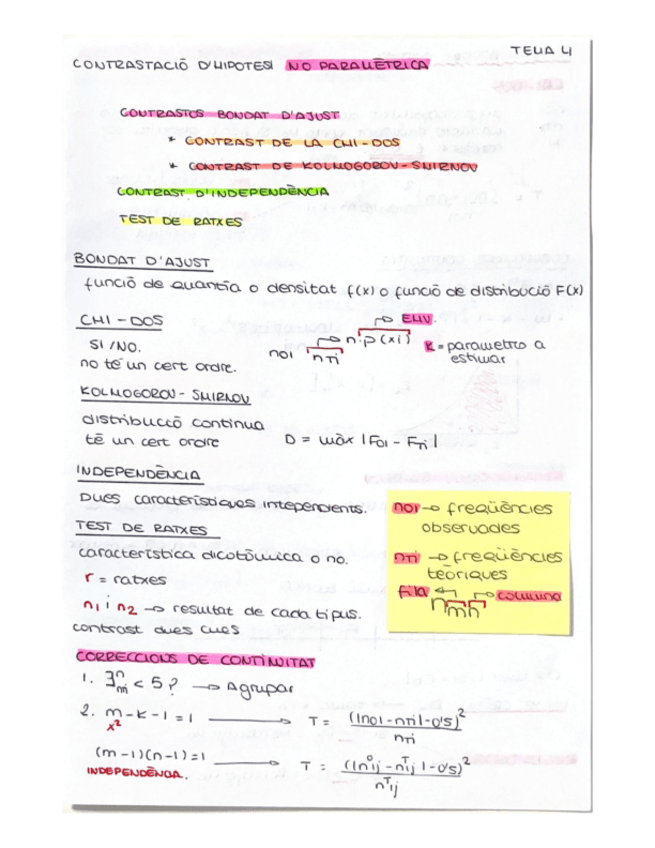 TEMA 4
CONTRASTACIÓ D'HIPOTESI NO PARAMÈTRICA
CONTRASTOS BONDAT D'AJUST
* CONTRAST DE LA CHI-DOS
* CONTRAST DE KOLMOGOROV-SMIRNOV
CONTRAST D'INDEPENDÈNCIA
TEST DE RATXES
BONDAT D'AJUST
funció de quantia o densitat f(x) o funció de distribució F(x)
CHI-DOS
SI/NO.
no té un cert ordre.
noi nTi → n·p(xi) → EMV.
K = parametro a
estimar
KOLMOGOROV-SMIRNOV
distribució continua
té un cert ordre
D = màx |Foi - FTi|
INDEPENDÈNCIA
Dues característiques intependents.
TEST DE RATXES
característica dicotòmica o no.
r = ratxes
n1 i n2 → resultat de cada tipus.
contrast dues cues
noi → freqüències
observades
nTi → freqüències
teòriques
fila ← → columna
nmn
CORRECCIONS DE CONTINUITAT
1. ∃ n m < 5? → Agrupar
2. m-k-1=1 → T = (|noi-nTi|-0'5)² / nTi
x²
(m-1)(n-1)=1 → T = (|nºij - nᵀij|-0'5)² / nᵀij
INDEPENDÈNCIA.